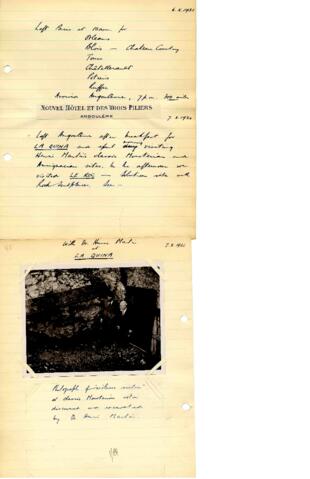 6. X. 1931
Left Paris at for
Orleans
Blois — Chateau Country
Tours
Châtellerault
Poitiers
Ruffec
Arrive Angoulême, 7 p.m.
NOUVEL HÔTEL ET DES TROIS PILIERS
ANGOULÊME
7. X. 1931
Left Angoulême after breakfast for
LA QUINA and spent morning visiting
Henri Martin's classic Mousterian and
Aurignacian sites. In the afternoon we
visited LE ROC — Solutrean site with
Rock Sculptures.
With Dr. Henri Martin 7. X. 1931
at
LA QUINA
Photograph
at classic Mousterian site
discovered and excavated
by Dr Henri Martin.